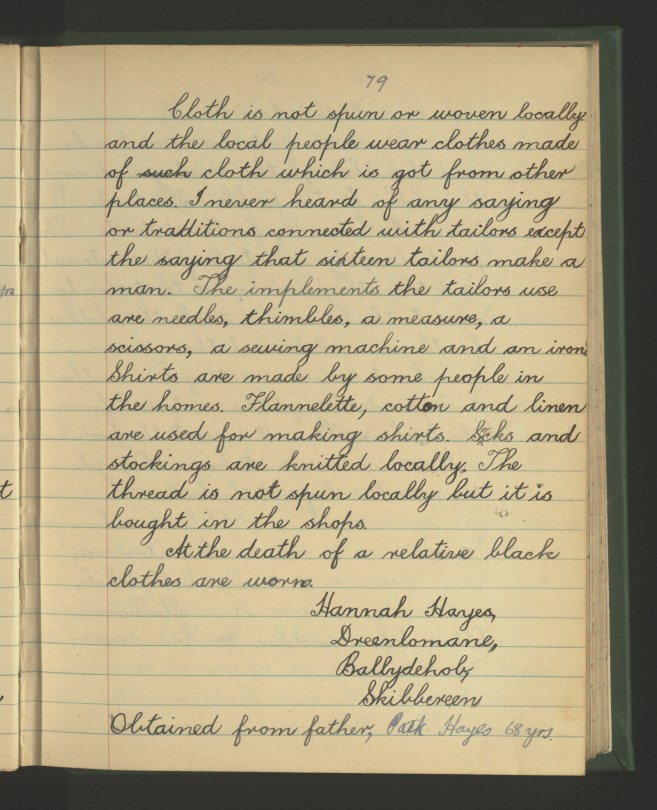 79
Cloth is not spun or woven locally
and the local people wear clothes made
of such cloth which is got from other
places. I never heard of any saying
or traditions connected with tailors except
the saying that sixteen tailors make a
man. The implements the tailors use
are needles, thimbles, a measure, a
scissors, a sewing machine and an iron.
Shirts are made by some people in
the homes. Flannelette, cotton and linen
are used for making shirts. Socks and
stockings are knitted locally. The
thread is not spun locally but it is
bought in the shops.
At the death of a relative black
clothes are worn.
Hannah Hayes,
Dreenlomane,
Ballydehob,
Skibbereen
Obtained from father, Patk Hayes 68 yrs.